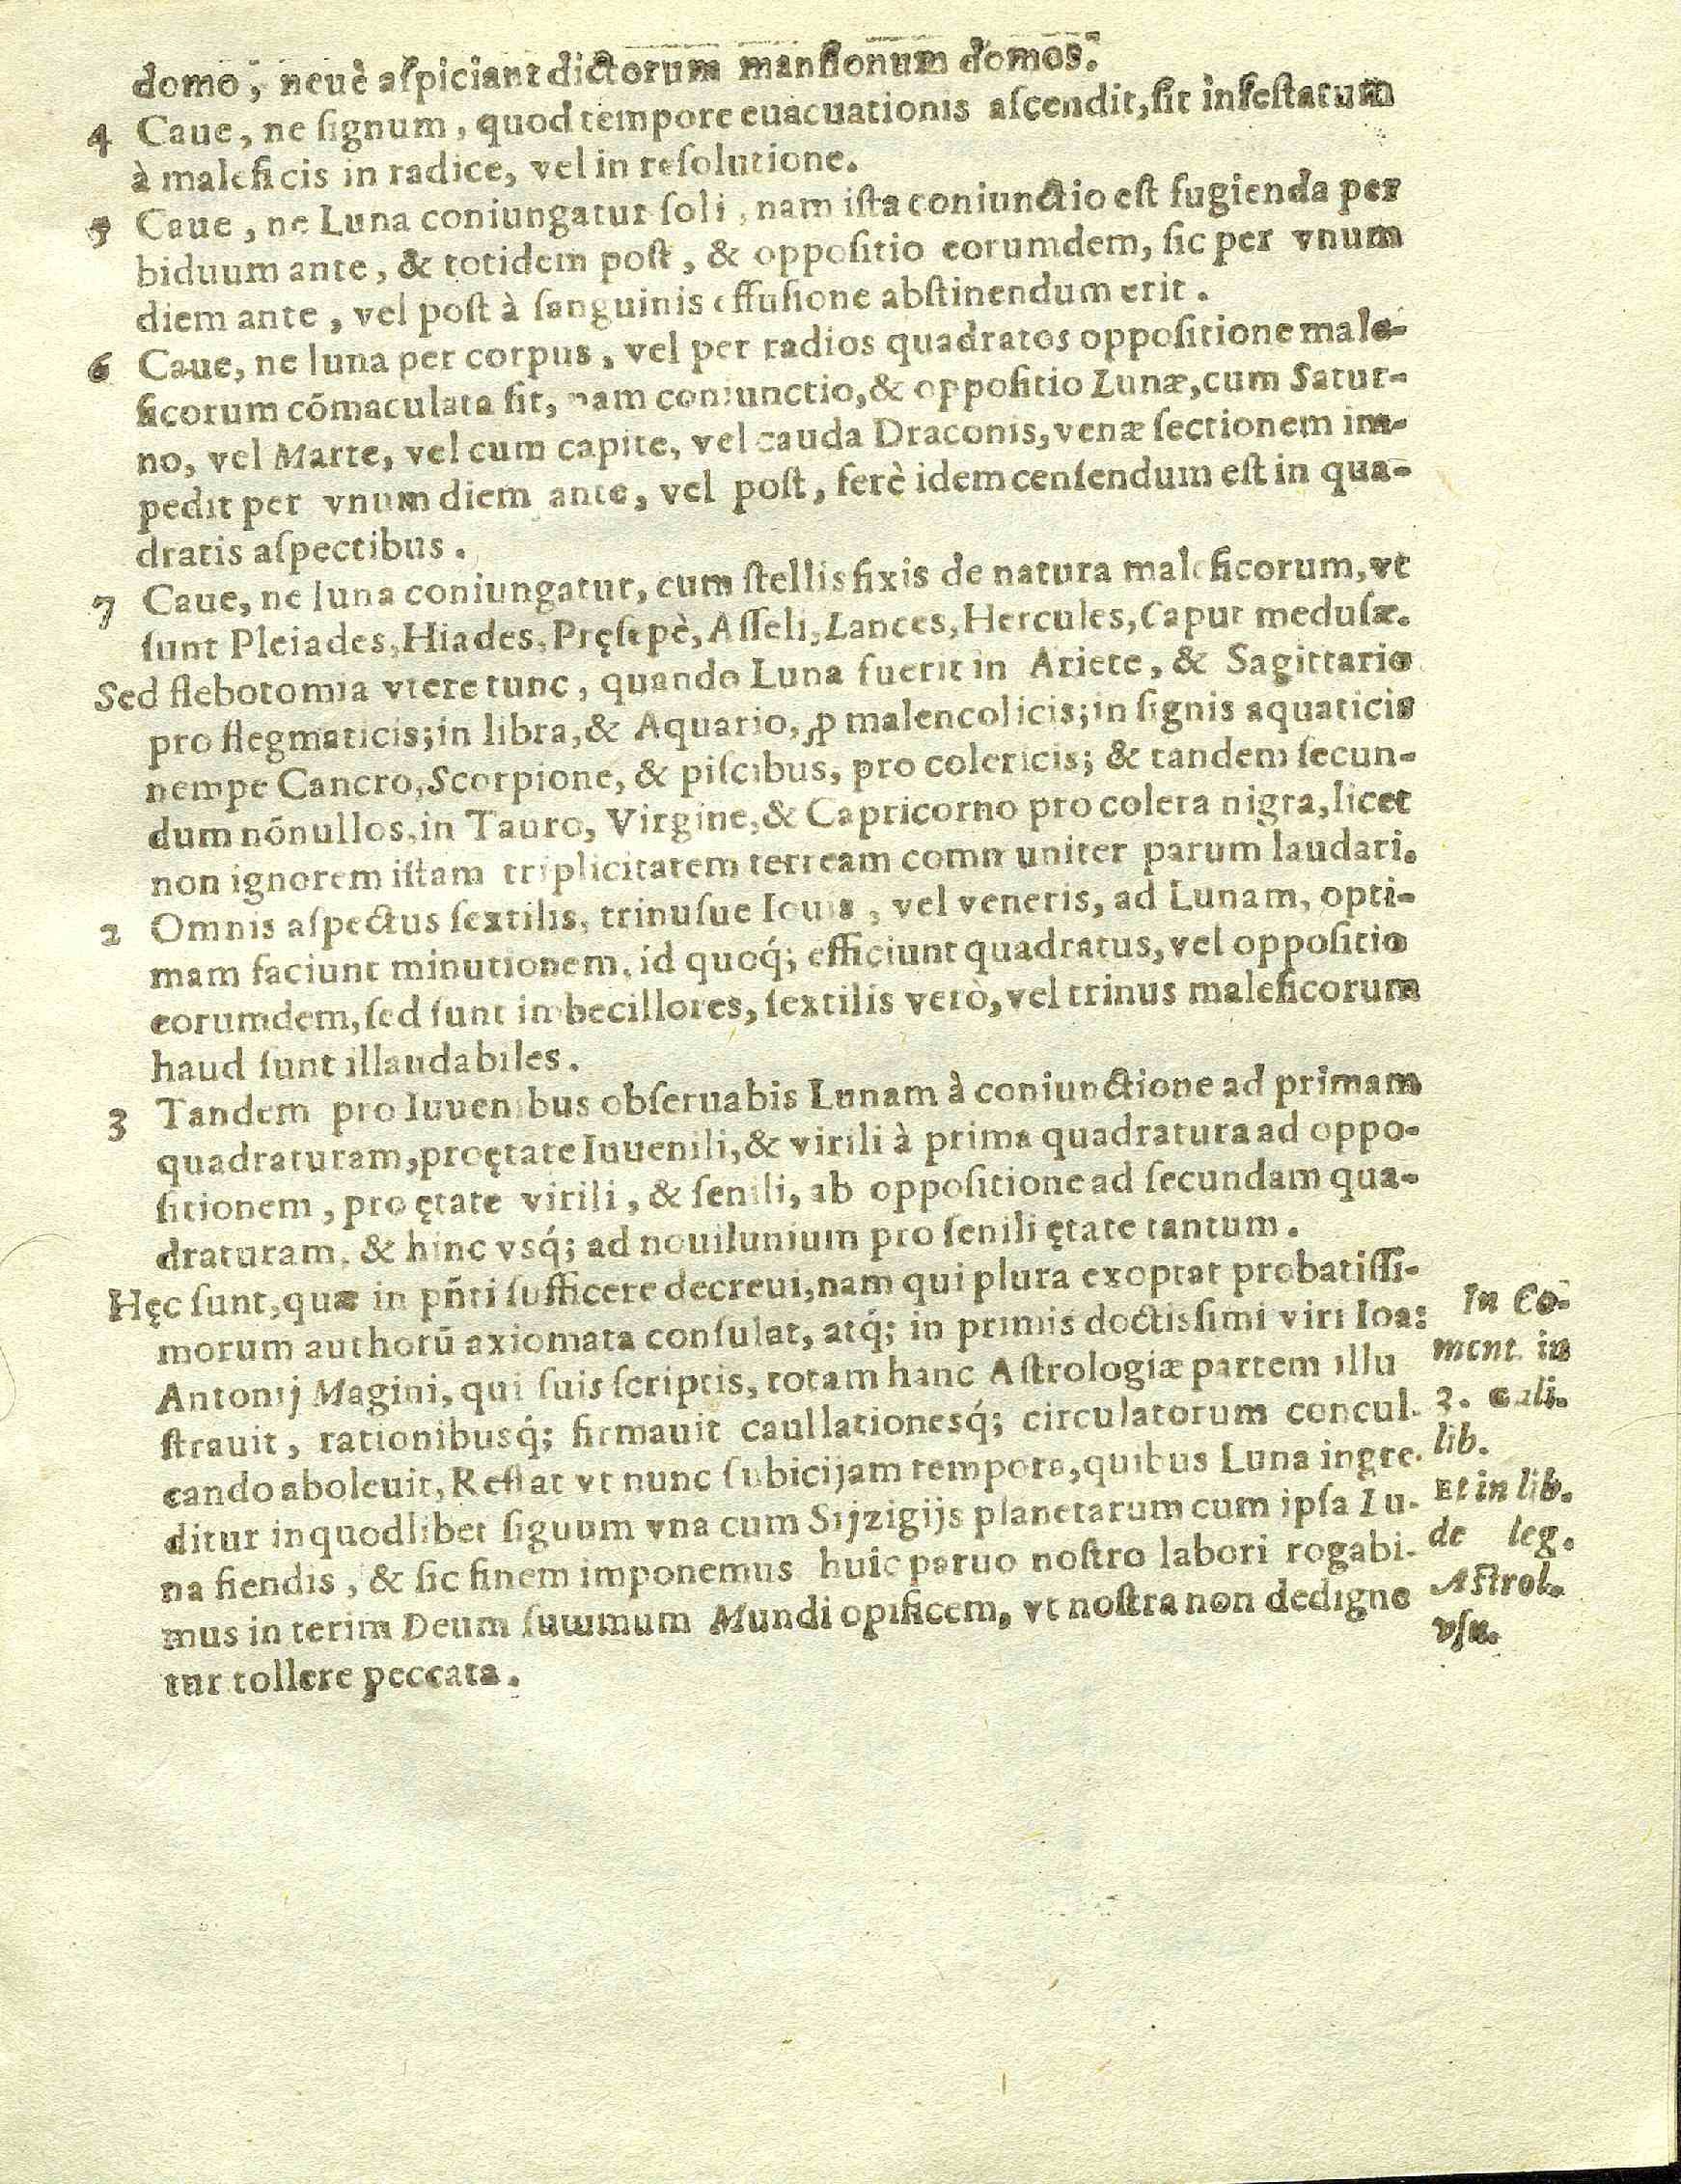 domo, neuè aſpiciant dictorum manſionum domos.
4 Caue, ne ſignum, quod tempore euacuationis aſcendit, ſit infeſtatum
à maleficis in radice, vel in reſolutione.
5 Caue, ne Luna coniungatur ſoli, nam iſta coniunctio eſt fugienda per
biduum ante, & totidem poſt, & oppoſitio eorumdem, ſic per vnum
diem ante, vel poſt à ſanguinis effuſione abſtinendum erit.
6 Caue, ne luna per corpus, vel per radios quadratos oppoſitione male-
ficorum cōmaculata ſit, nam coniunctio, & oppoſitio Lunæ, cum Satur-
no, vel Marte, vel cum capite, vel cauda Draconis, venæ ſectionem im-
pedit per vnum diem ante, vel poſt, ferè idem cenſendum eſt in qua-
dratis aſpectibus.
7 Caue, ne luna coniungatur, cum ſtellis fixis de natura maleficorum, vt
ſunt Pleiades, Hiades, Pręſepè, Aſſeli, Lances, Hercules, Caput meduſæ.
Sed flebotomia vtere tunc, quando Luna fuerit in Ariete, & Sagittario
pro flegmaticis; in libra, & Aquario, ꝓ malencolicis; in ſignis aquaticis
nempe Cancro, Scorpione, & piſcibus, pro colericis; & tandem ſecun-
dum nōnullos, in Tauro, Virgine, & Capricorno pro colera nigra, licet
non ignorem iſtam triplicitatem terream communiter parum laudari.
2 Omnis aſpectus ſextilis, trinuſue Iouis, vel veneris, ad Lunam, opti-
mam faciunt minutionem, id quoq́; efficiunt quadratus, vel oppoſitio
eorumdem, ſed ſunt imbecillores, ſextilis verò, vel trinus maleficorum
haud ſunt illaudabiles.
3 Tandem pro Iuuenibus obſeruabis Lunam à coniunctione ad primam
quadraturam, pro ętate Iuuenili, & virili à prima quadratura ad oppo-
ſitionem, pro ętate virili, & ſenili, ab oppoſitione ad ſecundam qua-
draturam, & hinc vsq́; ad nouilunium pro ſenili ętate tantum.
Hęc ſunt, quæ in pñti ſufficere decreui, nam qui plura exoptat probatiſſi-
morum authorū axiomata conſulat, atq́; in primis doctisſimi viri Ioa:
Antonij Magini, qui ſuis ſcriptis, totam hanc Aſtrologiæ partem illu
ſtrauit, rationibusq́; firmauit caullationesq́; circulatorum concul-
cando aboleuit, Reſtat vt nunc ſubicijam tempora, quibus Luna ingre-
ditur in quodlibet ſiguum vna cum Sijzigijs planetarum cum ipſa Lu-
na fiendis, & ſic finem imponemus huic paruo noſtro labori rogabi-
mus in terim Deum ſummum Mundi opificem, vt noſtra non dedigne
tur tollere peccata.
In Co-
ment. in
3. Gali.
lib.
Et in lib.
de leg.
Aſtrol.
vſu.